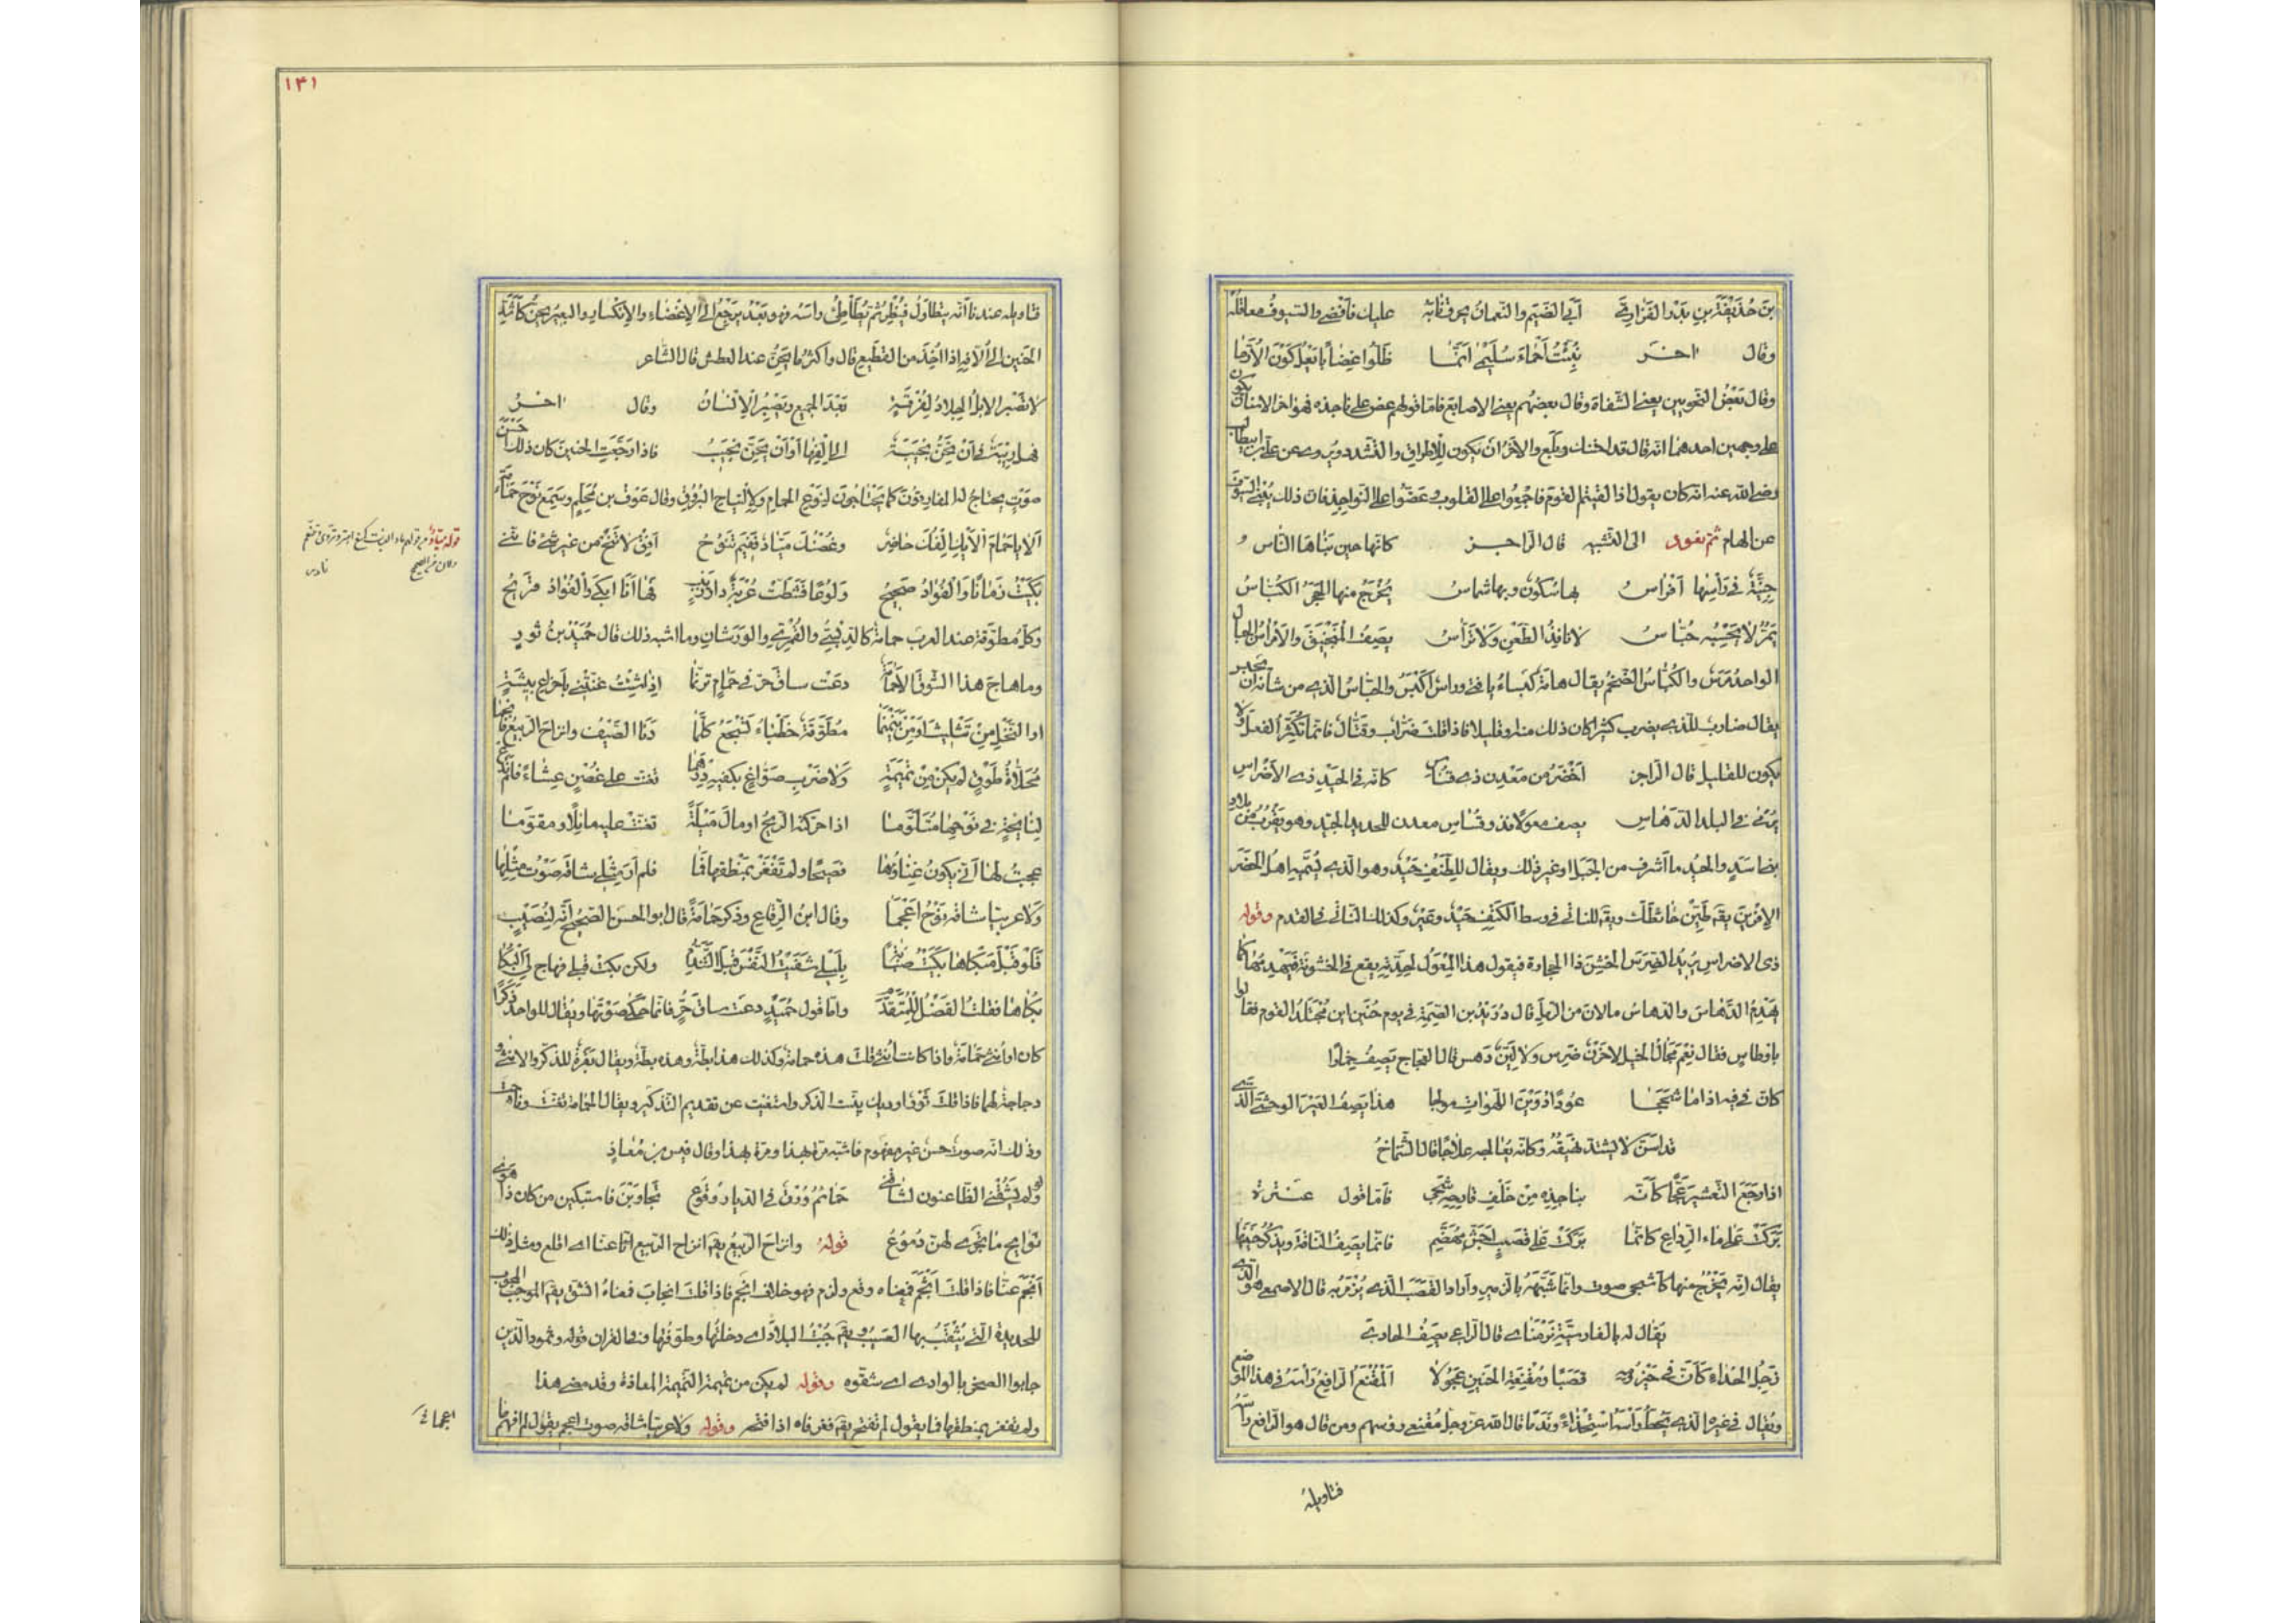 بن حُذَيْفَةَ بنِ بَدْرٍ الفَزَارِيّ أبَى الضَيْمَ والنّعمانُ يحرق نابَه عليك فأفضى والسّيوفُ معاقلُه
وقال اخر نُبِّئتُ أحْماءَ سُلَيمى انّما ظلّوا غِضاباً يَعْلِكونَ الأُرَّما
وقال بَعْضُ النحويين يعنى الشفاة وقال بعضهم يعنى الاصابع فامّا قولهم عض على ناجذه فهو اخر الاسنان يكون
على وجهين احدهما انّه قال قد احتنك وبلَغ والآخر ان يكون للإطراق والتشدد ويروى عن علىّ بن ابيطالب
رضى الله عنه انّه كان يقول اذا لقيتم القوم فاجمعوا القلوب وعَضّوا على النّواجذ فان ذلك يُنْبِى السّيوف
عن الهام ثم نعود الى التشبيه قال الرّاجز كانّها حين تناهَا النّاس و
جِنّيّةٌ فى رأسِها أمْراسُ بها سكون وبها شماسُ يَخْرُجُ منها الحَجَرُ الكُبَاسُ
يَمُرُّ لا يَحْبِسُه حُبّاسُ لا نافِذُ الطَعْنِ ولا تَرّاسُ يصِفُ المَنْجَنِيقَ والأمراسُ الحبال
الواحد مَرَسٌ والكُبَاسُ الضَخْمُ يقال هامَةٌ كَبساءُ يا فتى وراسٌ أكْبَسُ والحبّاسُ الذى من شانه ان يحبس
يقال ضاربٌ للّذى يضرب كثيرًا كان ذلك منه او قليلا فاذا قلتَ ضَرّاب وقَتّال فانّما تُكَثِّرُ الفعلَ ولا
يكون للقليل قال الرّاجز أخْضَرُ من مَعْدِنِ ذى قساس كانّه فى الحَيْدِ ذى الأضْراسِ
يُرْمَى به فى البلد الدَهاسِ يصف معولا وذو قُساسٍ معدن للحديد الجيّد وهو يقرب من بلاد
بنى اسَدٍ والحَيْد ما اشرف من الجَبل او غير ذلك ويقال للطنف حَيْد وهو الذى يُسمّيه اهلُ الحَضَر
ذى الاضراس يريد الضَرِسَ الخشن ذا الحجارة فيقول هذا المِعْوَل لحدّته يقع فى الخشونة فيهدمها كما
يَهْدِمُ الدَّهاسَ والدّهاسُ مالان من الرمل قال دُرَيْدُ بن الصِمّة فى يوم حُنَين اين مُجْتَلَدُ القوم فقالوا
باوطاس فقال نِعْمَ مَجَالُ الخيل لا حَزْنٌ ضَرِس ولا ليِّنٌ دَهس قال العجّاج يَصِفُ حِمارًا
كأنّ فى فيه اذا ما شَحَجَا عودًا دُوَيْنَ اللهواتِ مولجا هذا يصفُ العَيْرَ الوحشىّ الّذى
قد اسنّ لا يشتدّ نهيقُه وكانّه يعالجه علاجًا قال الشّمّاخُ
اذا رَجّعَ التَعشيرَ عَجًّا كأنّه بناجِذِه مِنْ خَلْفِ قارِحِهِ شَجِى فامّا قول عنترة
بَرَكَتْ على ماء الرِّداعِ كانّما بَرَكَتْ على قَصَبٍ اجَشَّ مُهَضَّمِ فانّما يصِفُ النّاقَة ويَذكُر حَنينَها
يقال انّه يَخْرُجُ منها كاشجى صوت وانّما شَبَّهَهُ بالزمير وارادَ القَصَبَ الذى يُزْمَرُ به قال الاصمعى هو الّذى
يقال له بالفارسيّة نَرْمَناى قال الرّاعى يصِفُ الحادىَ
زَجِلَ الحُدَاء كأنّ فى حَيْزُومِه قَصَبًا ومُقْنِعَةَ الحنين عَجُولا المُقْنَعُ الرافعُ رأسَه فى هذا الموضع
ويُقال فى غيره الذى يَحُطُّ رأسَه استخذاءً ونَدَمًا قال الله عزّ وجلّ مُقنعى رؤسهم ومن قال هو الرّافع رأسه
فتاويله
۱۳۱
فتاويله عندنا انّه يتطاول فيُنْظُر ثم يُطَأطِئُ راسَه فهو بَعْدُ يَرْجِعُ الى الإغْضاء والانكسار والبعيرُ يَحِنُّ كأشَدّ
الحَنين الى أُلّافِه اذا أُخِذَ من القطيع قال واكثر ما يَحِنّ عند العطش قال الشّاعر
لا تَصْبر الابلُ الجِلادُ لِفُرْقَةٍ بَعْدَ الجميعِ ويَصْبِرُ الانسانُ وقال اخرُ
فهل ريبَةٌ فى أنْ تَحِنّ نَجيبَةٌ الى إلْفِها أوْ أنْ يَحِنَّ نَجيبُ فاذا رجّعتِ الحنينَ كان ذلك احسن
صوْتٍ يحتاج له المفارقون كما يحتاجون لنوح الحمام ولالتياح البُروق وقال عَوْف بن مُحَلِّم وسَمِع نَوْحَ حمامة
ألا يا حَمامَ الأيكِ إلْفُكَ حاضِرٌ وغُصْنُكَ مَيّادٌ فَفيمَ تَنُوحُ أفِقْ لا تنُحْ من غير شئ فاننى
بَكَيْتُ زمانًا والفُؤادُ صَحيحُ وَلوعًا فشَطّتْ غُرْبَةً دارُ زينب فَها أنَا ابكى والفؤادُ قَريحُ
وكلّ مُطَوَّقة عند العرب حمامة كالدُّبسىّ والقُمرىّ والوَرَشان وما اشبه ذلك قال حُمَيْدُ بنُ ثورٍ
وما هاجَ هذا الشوقَ الّا حَمامةٌ دعَتْ ساقَ حرّ فى حَمامٍ تَرَنَّما اذا شِئْتُ غنّتنى باجزاع بِيشَةٍ
او النّخْلِ مِنْ تَثْليثَ اوْ مِنْ يَبَنْبَما مُطَوّقَةٌ خَطْباءُ تَسْجَعُ كلّما دَنا الصَيْفُ وانزاحَ الرّبيعُ فأنجما
مُحَلّاةُ طَوْقٍ لم يكنْ مِنْ تَميمَةٍ ولا ضَرْبِ صَوّاغٍ بكفّيهِ دِرهما تغنّت على غُصْنٍ عِشاءً فلم تَدَعْ
لِنائحَةٍ فى نَوْحِها مُتَلَوَّما اذا حرّكته الريحُ او مالَ مَيْلَةً تغنّتْ عليه مائلًا ومقوّمَا
عجبتُ لها أنّى يكونُ غِناؤُها فصيحًا ولم تَفْغَرْ بمَنْطِقِها فَما فلم أرَ مِثلى شاقَه صَوْتُ مِثْلِها
ولا عربيّا شاقه صَوْتُ أعْجَما وقال ابنُ الرّقاع وذكر حَمامةً قال ابو الحسن الصّحيح أنّه لنُصَيْبٍ
فَلَوْ قَبْلَ مَبْكاها بَكَيْتُ صَبابةً بِلَيْلَى شَفَيْتُ النّفسَ قبلَ التّندّمِ ولكن بكتْ قبلى فهاجَ لىَ البُكا
بُكاها فقلتُ الفَضْلُ لِلمُتَقَدِّمِ وامّا قول حُمَيْدٍ دعت ساق حُرٍّ فانّما حكى صَوْتَها ويُقال للواحد ذكرًا
كان او أُنثى حَمامَة واذا كانت أُنثى قلتَ هذه حمامة وكذلك هذا بطّة وهذه بطّة ويقال بَقَرَةٌ للذكر والانثى و
دجاجة لهما فاذا قلتَ ثَوْر او ديك بيّنت الذكر واستغنيت عن تقديم التّذكير ويقال للحمامة تغنّت وناحت
وذلك انّه صوت حسن غير مفهوم فاشبه مرّة بهذا ومرّة بهذا وقال قيس بن مُعاذٍ
ولو لم يَشُقْنى الظاعنون لشاقنى حَمائمُ وُرْقٌ فى الديار وُقوعُ تَجاوَبْنَ فاستبكين من كان ذا هوى
نوائح ما تجرى لهنّ دُمُوعُ قولهُ وانزاحَ الربيعُ يقال انزاح الرّبيع اى اقلع ومثل ذلك
أنجَمَ عنّا فاذا قلتَ أثْجَمَ فمعناه وقع ولزم فهو خلاف انجم فاذا قلتَ انجابَ فمعناهُ انشقّ
للحديدة الّتى يُثْقَبُ بها جُبْتُ البلادَ اى دخلتُها وطوّفْتُها وفى القران قوله وثمود الّذين
جابوا الصخر بالوادى اى شقّوه وقوله لم يكن من تميمة التّميمة المعاذة وقد مضى هذا
ولم تفغر بمنطقها فما يقول لم تفتح يقال فغر فاه اذا فتحه وقوله ولا عربيّا شاقه صوت اعجم يقول لم افهم ما